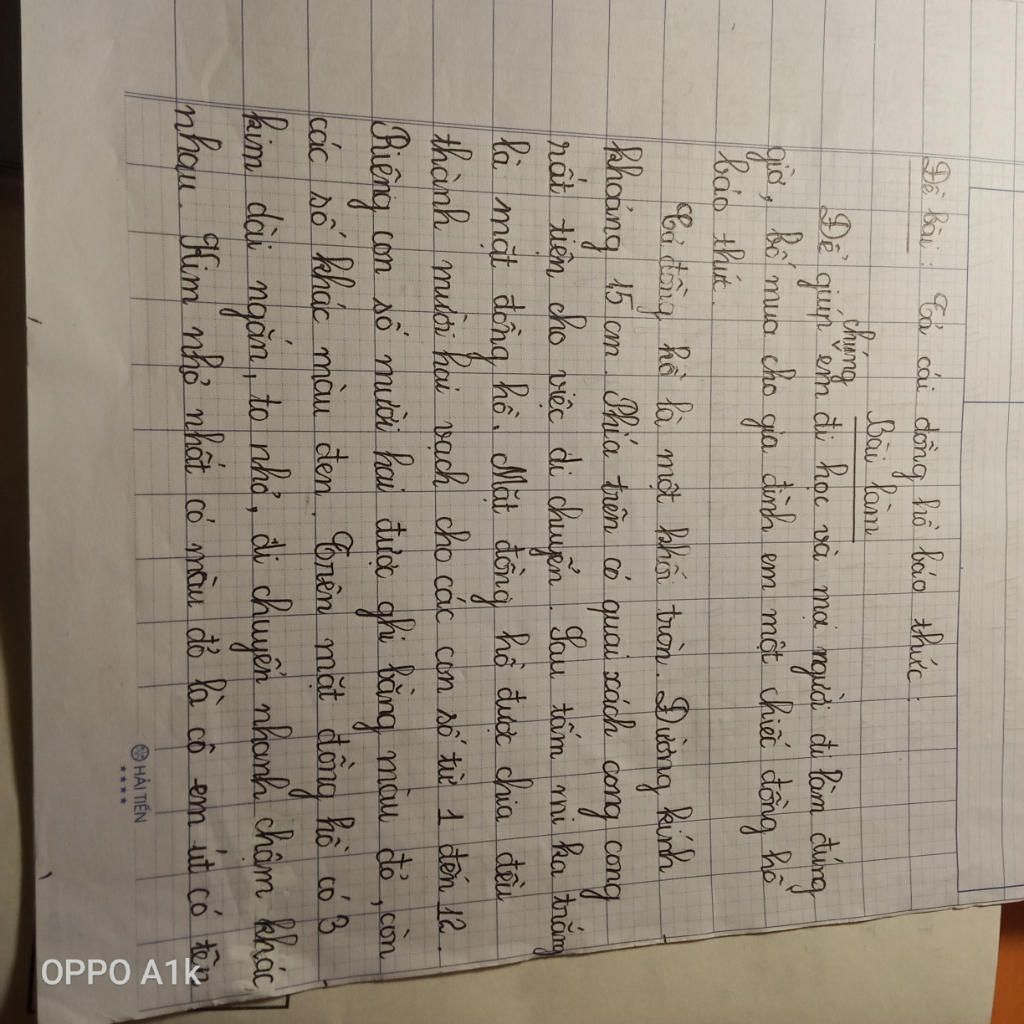 Đề bài: Tả cái đồng hồ báo thức:
Bài làm
chúng
Để giúp em đi học và mọi người đi làm đúng
giờ, bố mua cho gia đình em một chiếc đồng hồ
báo thức.
Cả đồng hồ là một khối tròn. Đường kính
khoảng 15 cm. Phía trên có quai xách cong cong
rất tiện cho việc di chuyển. Sau tấm mi ka trắng
là mặt đồng hồ. Mặt đồng hồ được chia đều
thành mười hai vạch cho các con số từ 1 đến 12.
Riêng con số mười hai được ghi bằng màu đỏ, còn
các số khác màu đen. Trên mặt đồng hồ có 3
kim dài ngắn, to nhỏ, di chuyển nhanh chậm khác
nhau. Kim nhỏ nhất có màu đỏ là cô em út có tên
HẢI TIẾN
OPPO A1k